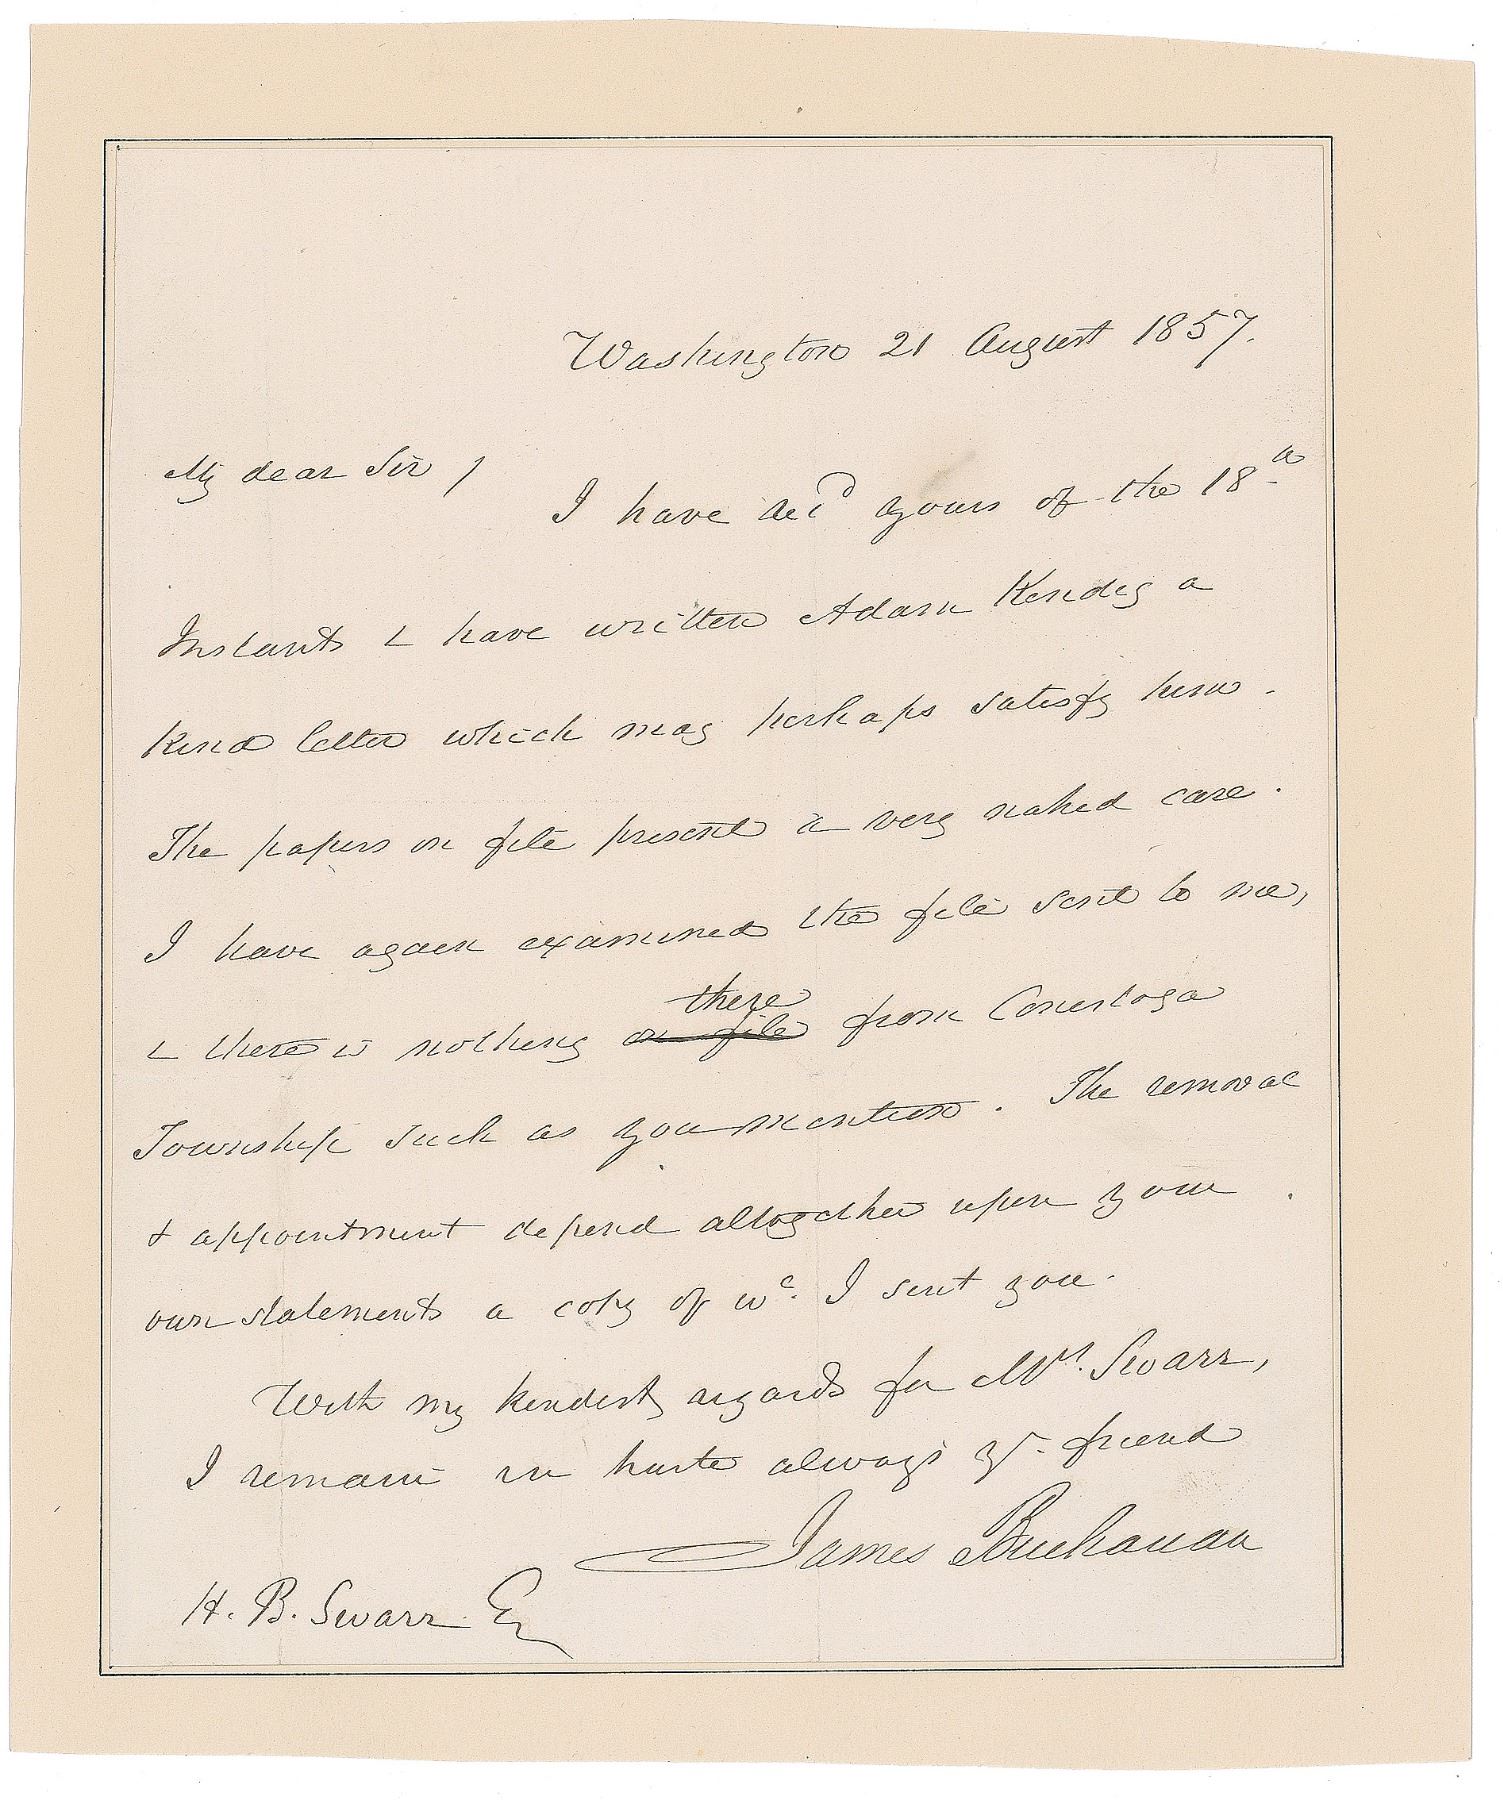 Washington 21 August 1857.
My dear Sir /
I have rec'd yours of the 18th
Instant & have written Adam Kendig a
kind letter which may perhaps satisfy him.
The papers on file present a very naked case.
I have again examined the file sent to me,
& there is nothing there from Conestoga
on file
Township such as you mention. The removal
& appointment depend altogether upon your
own statements a copy of wc. I sent you.
With my kindest regards for Mrs. Swarr,
I remain in haste always yr. friend
James Buchanan
H. B. Swarr Esq